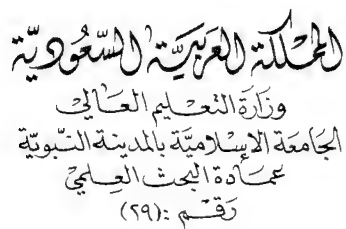 المملكة العربيّة السّعُوديّة
وزارة التعليم العالي
الجامعة الإسلاميّة بالمدينة النّبويّة
عمادة البحث العلمي
رقم : (٢٩)